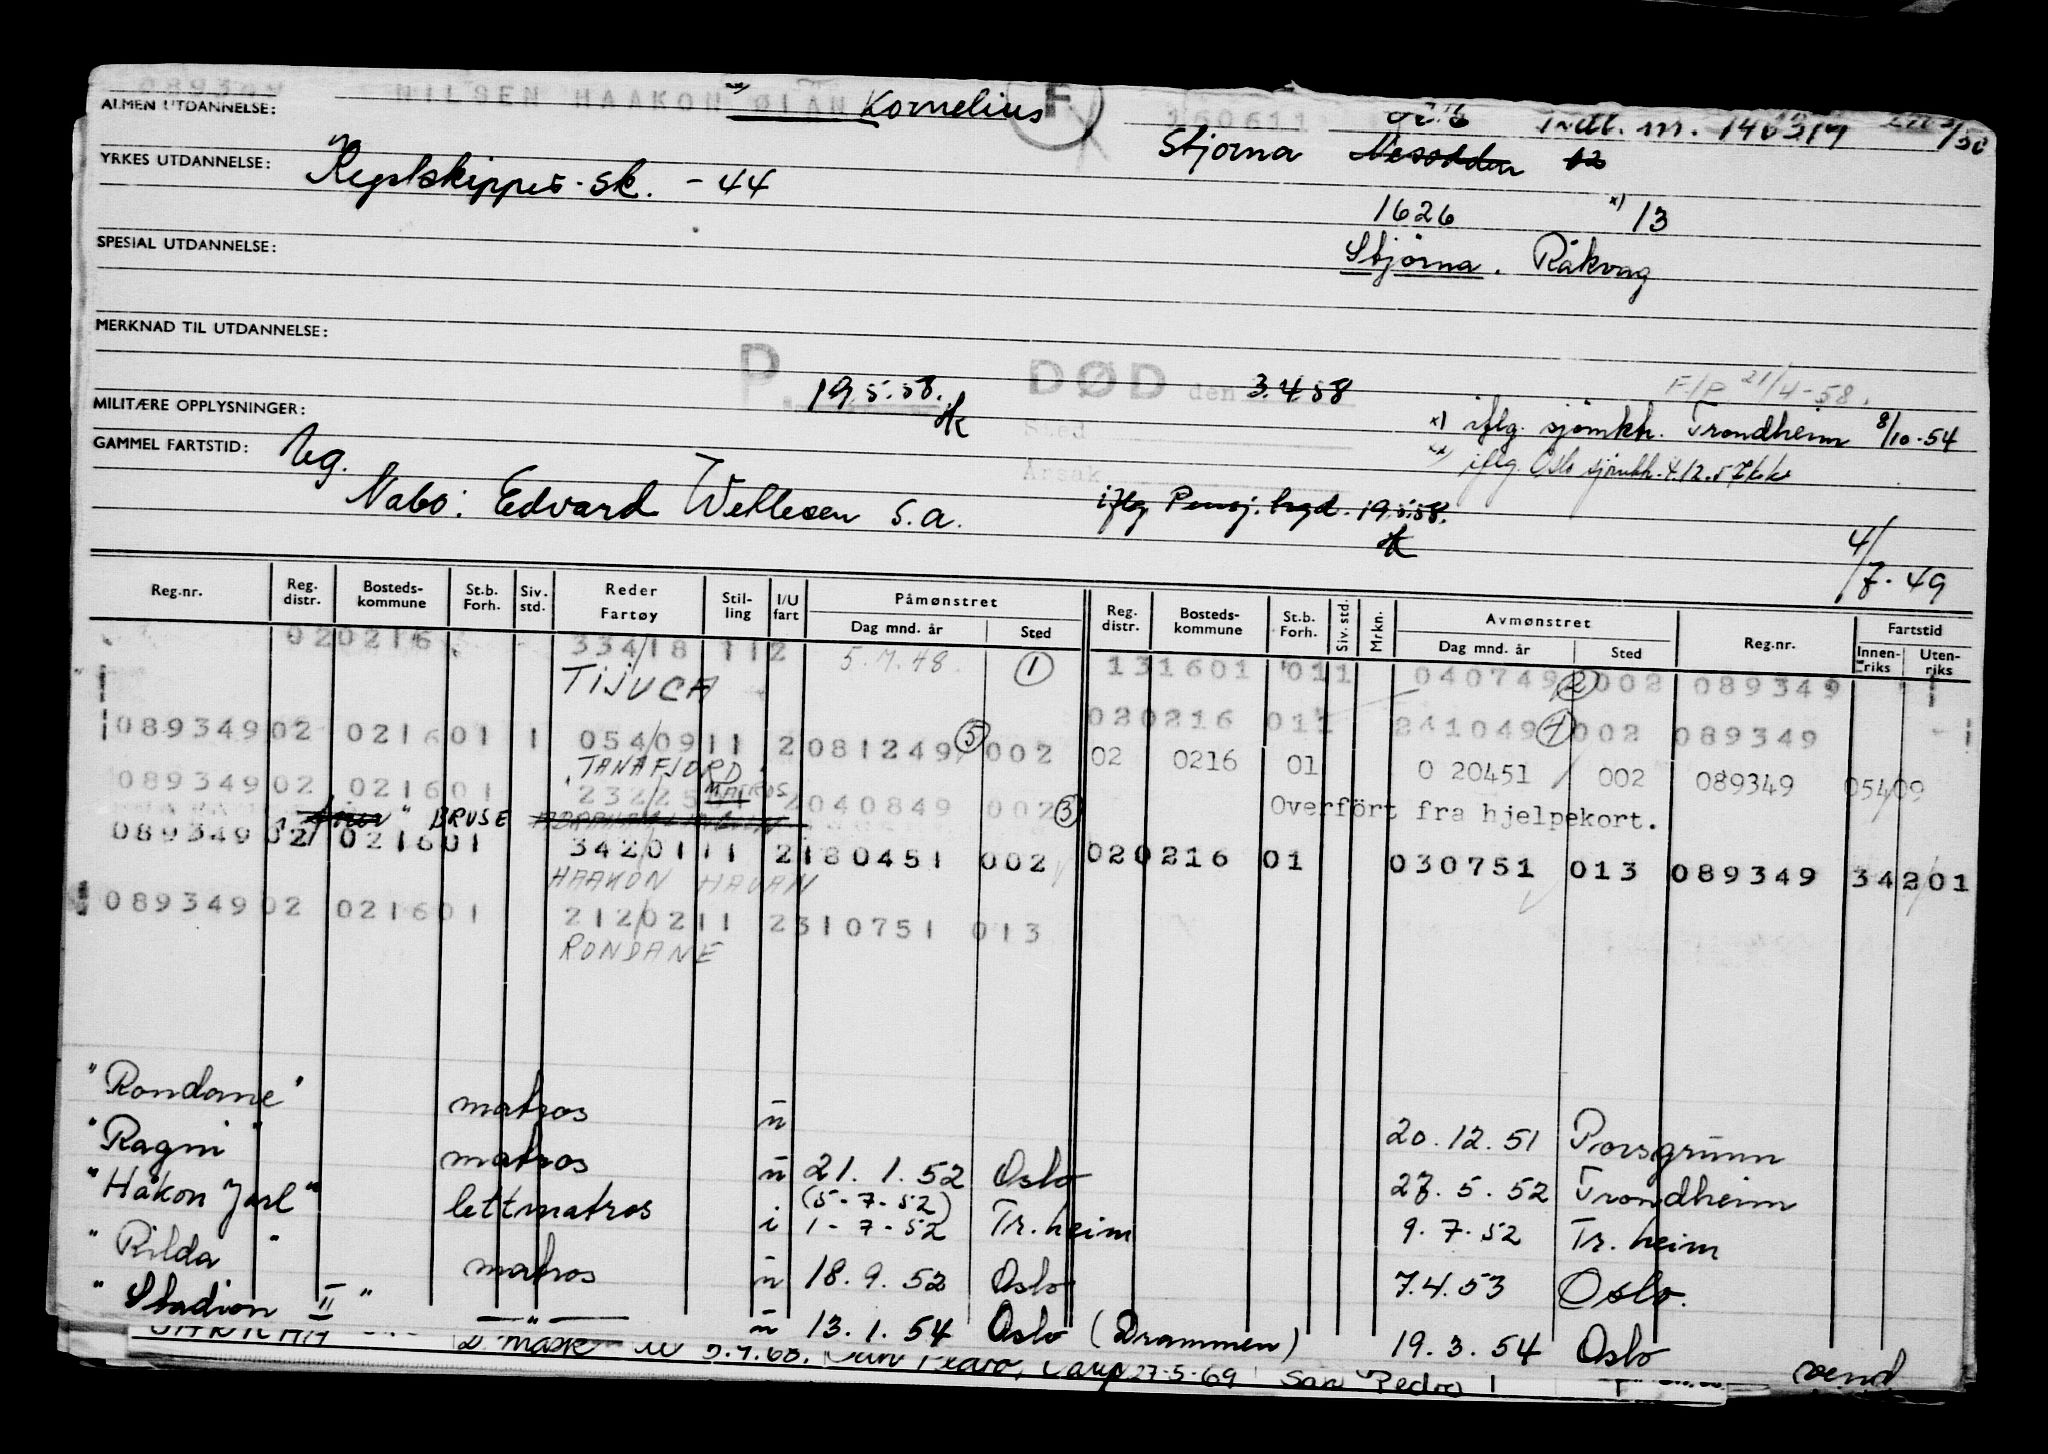 089349 NILSEN HAAKON Kornelius F 160611 Indb. nr.
ALMEN UTDANNELSE: Stjørna Nesodden
YRKES UTDANNELSE: sk. - 44
1626 x) 13
SPESIAL UTDANNELSE: Stjørna. Råkvåg
MERKNAD TIL UTDANNELSE:
P. 19.5.58. DØD den 3.4.58 F/P 21/4-58.
MILITÆRE OPPLYSNINGER: Sted x) iflg. sjømkt. Trondheim 8/10-54
GAMMEL FARTSTID: Årsak iflg. Oslo
Nabo: Edvard s.a. iflg Pensj. 19.5.58.
4/7-49
Reg.nr. Reg. distr. Bosteds- kommune St.b. Forh. Siv. std. Reder Fartøy Stil- ling I/U fart Påmønstret Dag mnd. år Sted Reg. distr. Bosteds- kommune St.b. Forh. Siv. std. Mrkn. Avmønstret Dag mnd. år Sted Reg.nr. Fartstid Innen- riks Uten- riks
020216 334/18 112 5.7.48. 1 131601 011 040749 2 002 089349
TIJUCA
020216 011 241049 4 002 089349
089349 02 0216 01 1 054/09 11 2 081249 5 002 02 0216 01 0 20451 002 089349 054/09
TANAFJORD
089349 02 0216 01 MATROS 2 040849 002 3 Overført fra hjelpekort.
" BRUSE
089349 02 0216 01 342/01 11 2 180451 002 020216 01 030751 013 089349 342/01
HAAKON HAUAN
089349 02 0216 01 212/02 11 2 310751 013
RONDANE
"Rondane" matros u 20.12.51 Porsgrunn
"Ragni" matros u 21.1.52 Oslo 27.5.52 Trondheim
(5-7-52)
"Håkon Jarl" lettmatros i 1-7-52 Tr.heim 9.7.52 Tr.heim
"Rilda" matros u 18.9.52 Oslo 7.4.53 Oslo.
"Stadion II" — " — u 13.1.54 Oslo (Drammen) 19.3.54 Oslo
vend
27-5-69 San Pedro